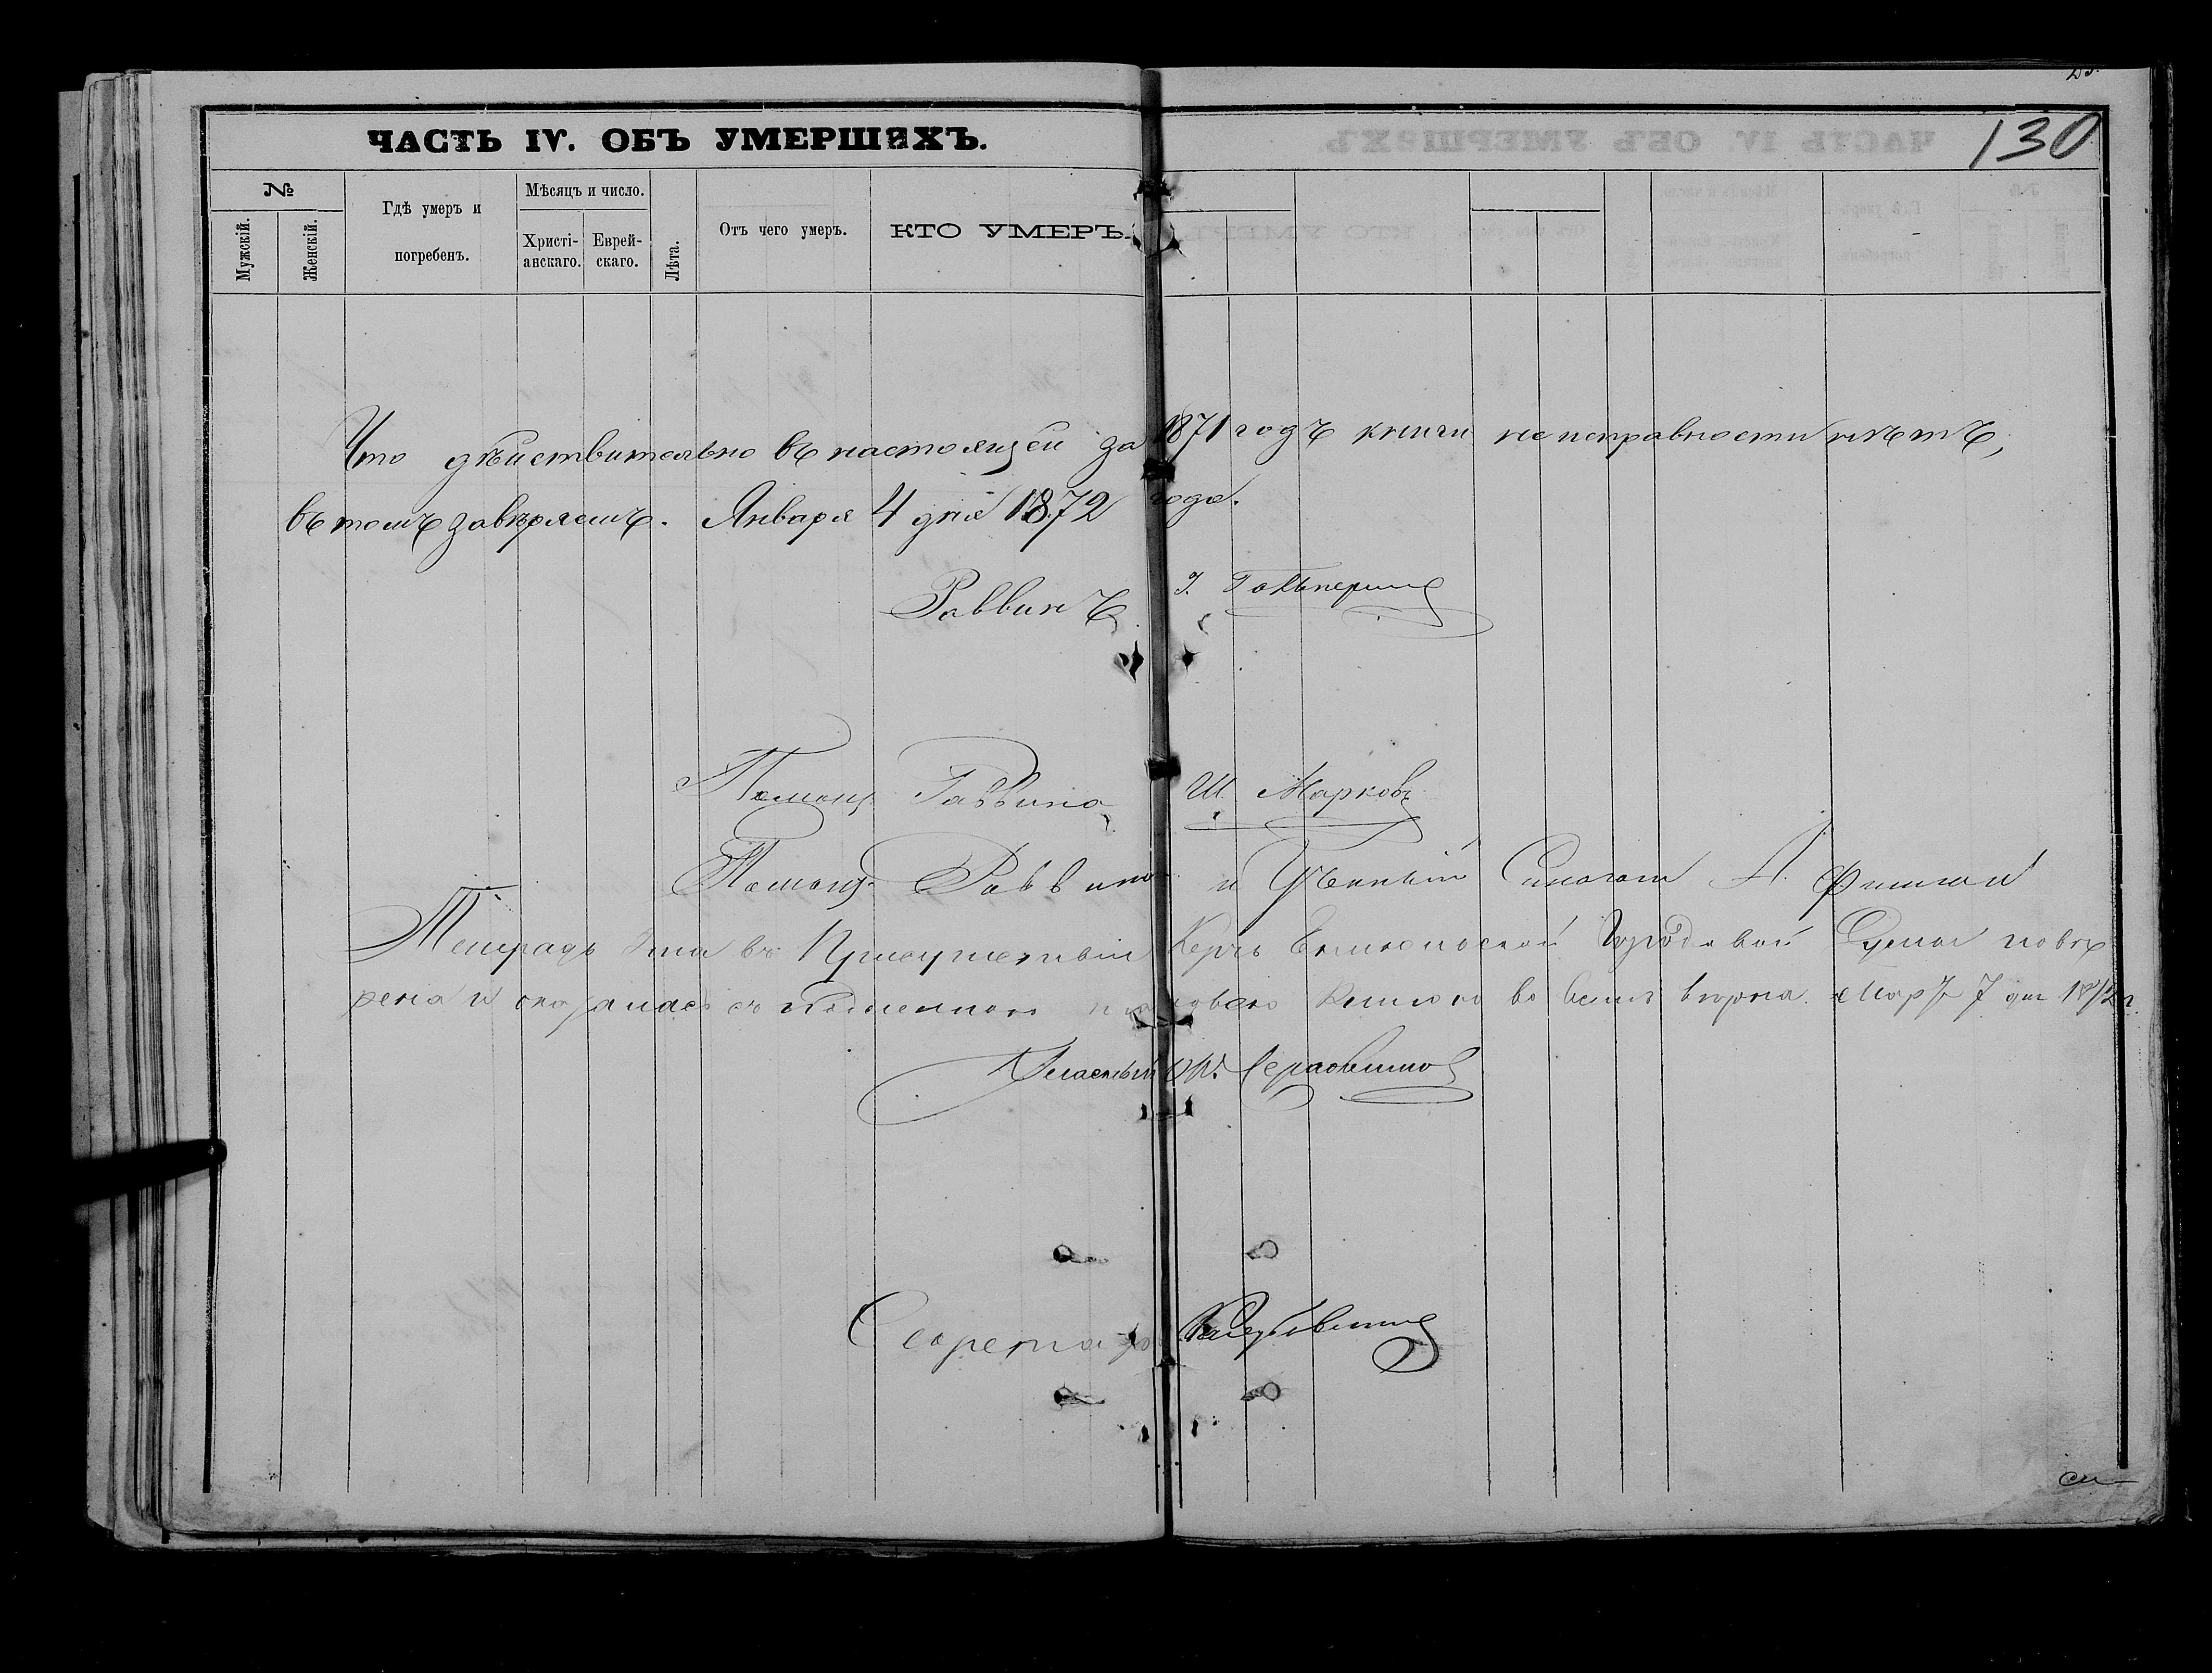 130
ЧАСТЬ IV. ОБЪ УМЕРШИХЪ.
№
Мужскій.
Женскій.
Гдѣ умеръ и погребенъ.
Мѣсяцъ и число.
Христі-анскаго.
Еврей-скаго.
Лѣта.
Отъ чего умеръ.
КТО УМЕРЪ.
Что дѣйствительно въ настоящей за 1871 годъ книги неисправности нѣтъ,
въ томъ завѣряемъ. Января 4 дня 1872 года.
Раввинъ І. Гальперинъ
Помощ. Раввина Ш. Марковъ
Помощ. Раввина и Ученый Синагоги А. Фишман
Тетрадь эта въ Присутствіи Керчь Еникольской Городовой Думы повѣ
рена и оказалась съ подлинною шнуровою книгою во всемъ вѣрна. Март 7 дня 1872 г.
Гласный
Секретарь